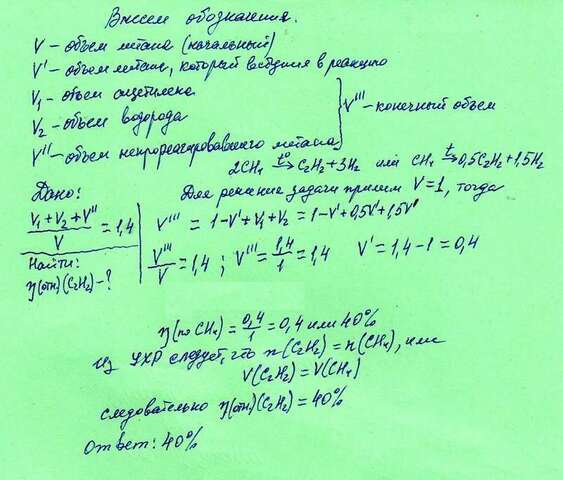 Введем обозначения.
V – объем метана (начальный)
V' – объем метана, который вступил в реакцию
V₁ – объем ацетилена
V₂ – объем водорода
V'' – объем непрореагировавшего метана
} V''' – конечный объем
2CH₄ →t° C₂H₂ + 3H₂ или CH₄ →t 0,5C₂H₂ + 1,5H₂
Дано:
(V₁ + V₂ + V'')/V = 1,4
Найти:
η(отн)(C₂H₂) – ?
Для решение задачи примем V = 1, тогда
V''' = 1 – V' + V₁ + V₂ = 1 – V' + 0,5V' + 1,5V'
V'''/V = 1,4 ; V''' = 1,4/1 = 1,4 V' = 1,4 – 1 = 0,4
η(по CH₄) = 0,4/1 = 0,4 или 40%
Из УХР следует, что n(C₂H₂) = n(CH₄), или
V(C₂H₂) = V(CH₄)
следовательно η(отн)(C₂H₂) = 40%
Ответ: 40%